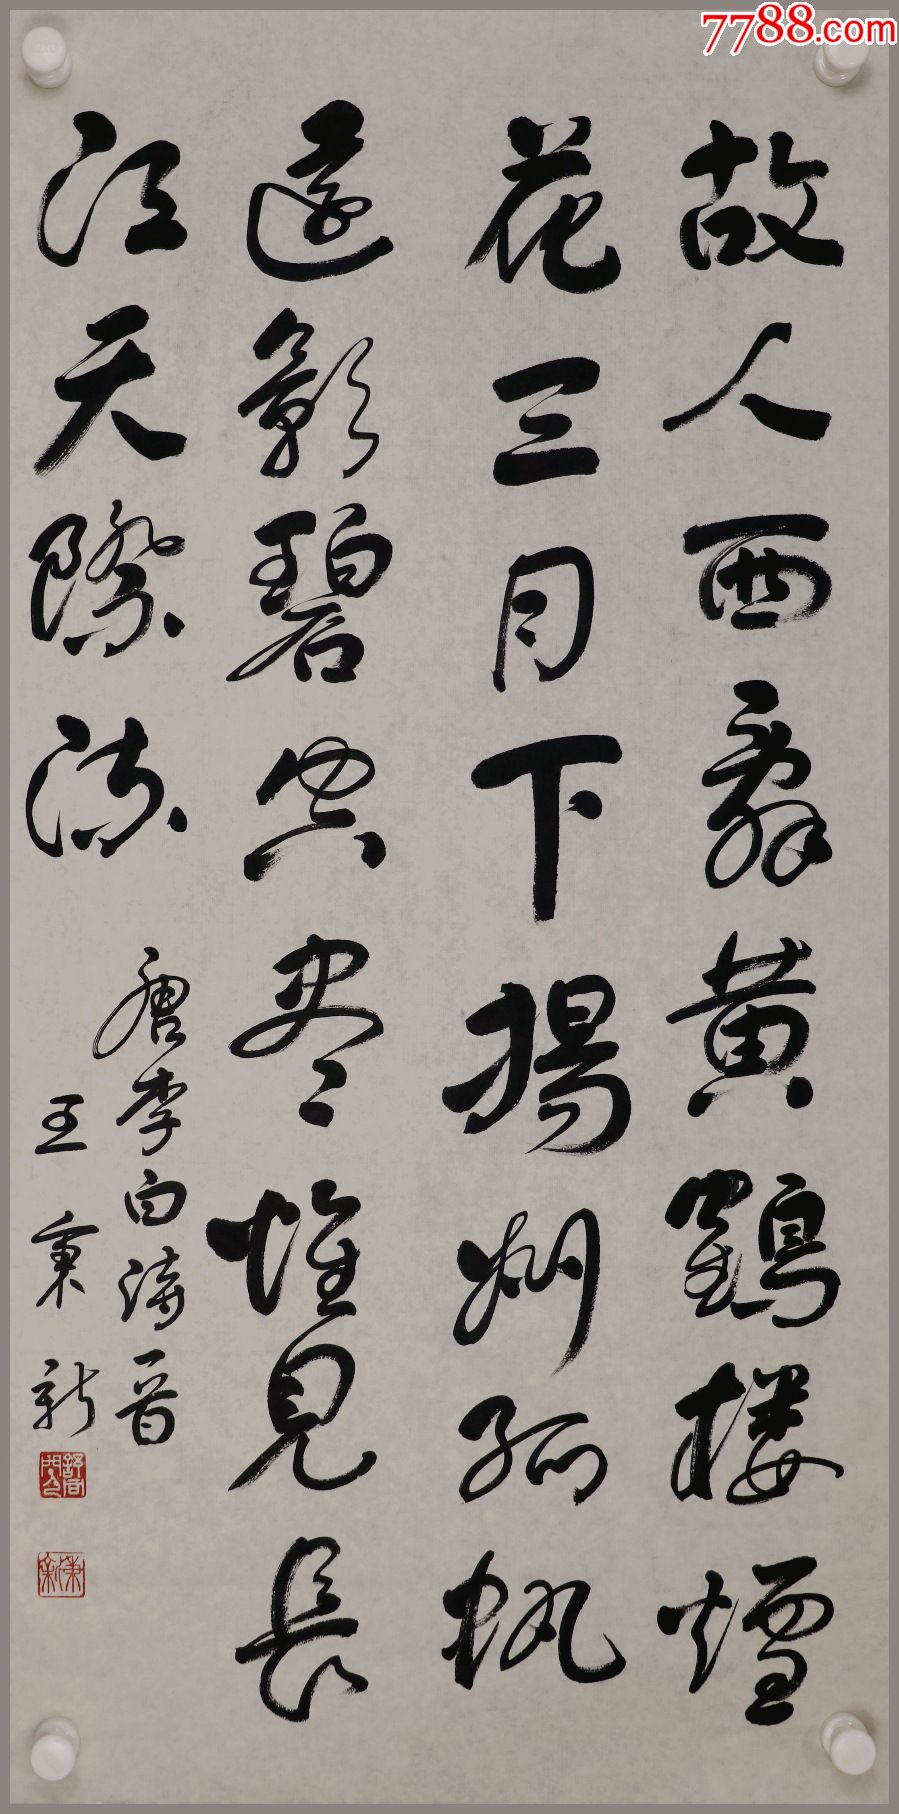 7788.com
故人西辭黄鶴樓煙
花三月下揚州孤帆
遠影碧空尽惟見長
江天際流
唐李白诗一首
王秉新
秉新